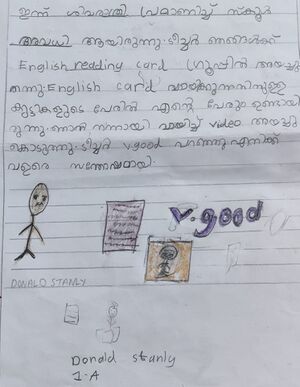 ഇന്ന് ശിവരാത്രി പ്രമാണിച്ച് സ്കൂൾ
അവധി ആയിരുന്നു. ടീച്ചർ ഞങ്ങൾക്ക്
English reading card ഗ്രൂപ്പിൽ അയച്ചു
തന്നു. English card വായിക്കുന്നതിനുള്ള
കുട്ടികളുടെ പേരിൽ എന്റെ പേരും ഉണ്ടായി
രുന്നു. ഞാൻ നന്നായി വായിച്ച് video അയച്ചു
കൊടുത്തു. ടീച്ചർ v.good പറഞ്ഞു. എനിക്ക്
വളരെ സന്തോഷമായി.
v.good
DONALD STANLY
Donald stanly
1-A